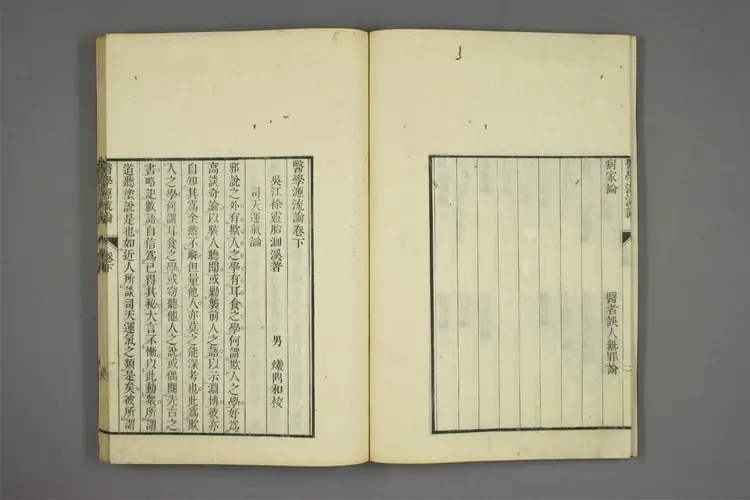 病家論 醫者誤人無罪論
醫學源流論卷下
吳江徐靈胎洄溪著 男 爔 和校
司天運氣論
邪說之外有欺人之學有耳食之學何謂欺人之學好爲
高談奇論以駭人聽聞或勦襲前人之語以示淵博彼亦
自知其爲全然不解但量他人亦莫之能深考也此爲欺
人之學何謂耳食之學或竊聽他人之說或偶閱先古之
書略記數語自信爲已得其秘大言不慚以此動衆所謂
道聽塗說是也如近人所談司天運氣之類是矣彼所謂
醫學源流論 卷下 一